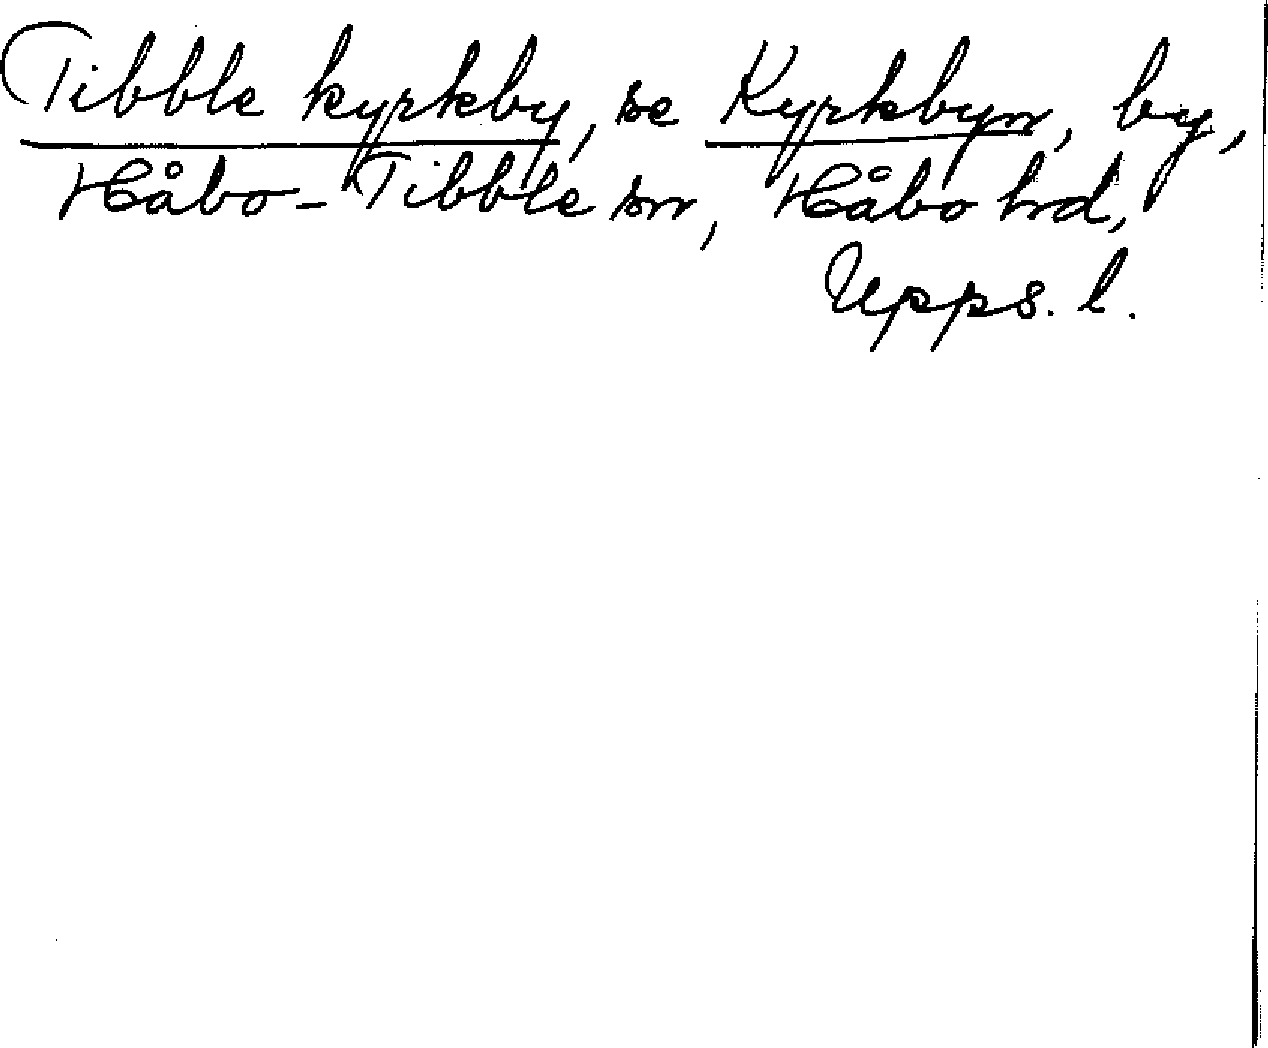 Tibble kyrkby, se Kyrkbyn, by,
Håbo-Tibble sn, Håbo hd,
Upps. l.